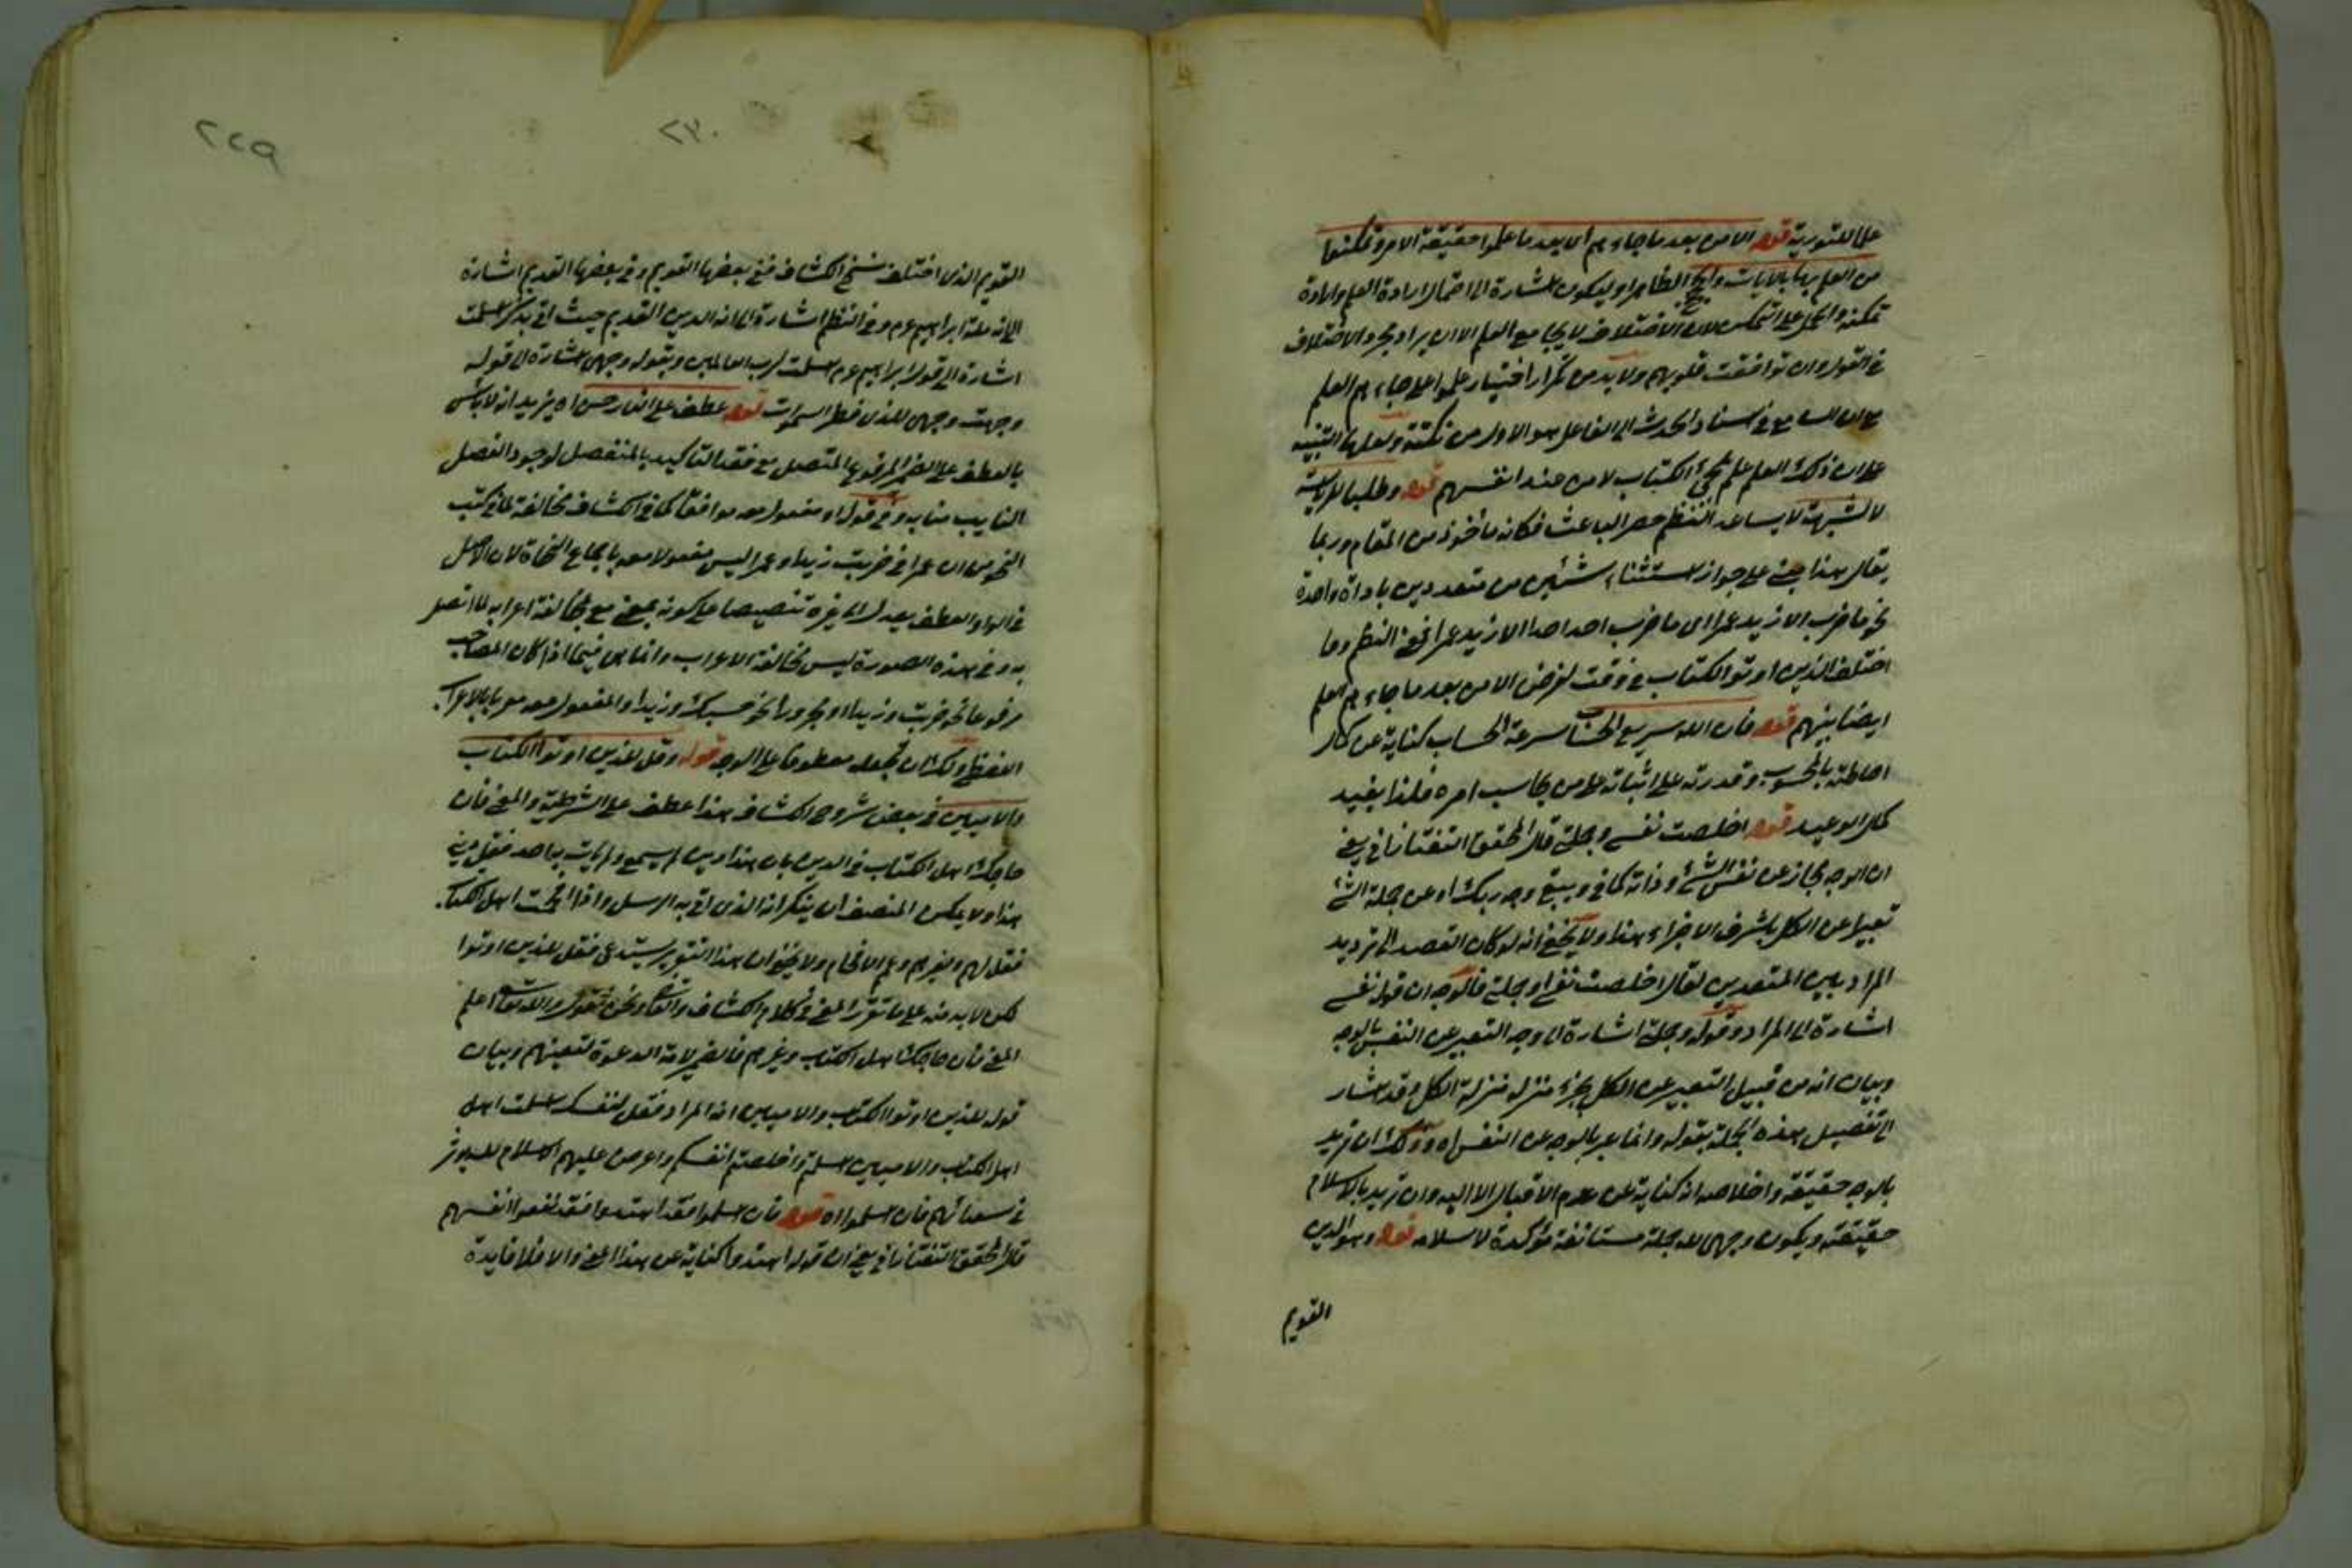 على التورية قوله الا من بعد ما جاءهم اى بعد ما علموا حقيقة الامر وتمكنوا
من العلم بها بالآيات والحجج الظاهر او ليكون اشارة الى احتمال ارادة العلم وارادة
تمكنه والحمل على التمكن لان الاختلاف لا يجامع العلم الا ان يراد مجرد الاختلاف
فى القول وان توافقت قلوبهم ولا بد من تكرار اختيار علموا على جاءهم العلم
مع ان الشايع فى اسناد الحدث الى الفاعل هو الاول من نكتة ولعلها التنبيه
على ان ذلك العلم علم مجئ الكتاب لا من عند انفسهم قوله وطلبا للرياسة
لا لشبهة لا يساعد النظم حصر الباعث فكانه مأخوذ من المقام وربما
يقال هذا مبنى على جواز استثناء شيئين من متعددين باداة واحدة
نحو ما ضرب الا زيد عمرا اى ما ضرب احد احدا الا زيد عمرا فمعنى النظم وما
اختلف الذين اوتوا الكتاب فى وقت لغرض الا من بعد ما جاءهم العلم
ايضا بينهم قوله فان الله سريع الحساب سرعة الحساب كناية عن كمال
احاطته بالمحسوب وقدرته على اثباته على من يحاسب امره فلذا يفيد
كمال الوعيد قوله اخلصت نفسى وجملتى قال المحقق التفتازانى يعنى
ان الوجه مجاز عن نفس الشئ وذاته كما فى ويبقى وجه ربك او عن جملة الشئ
تعبيرا عن الكل باشرف الاجزاء هذا ولا يخفى انه لو كان القصد الى ترديد
المراد بين المتعددين لقال اخلصت نفسى او جملتى فالوجه ان قوله نفسى
اشارة الى المراد وقوله وجملتى اشارة الى وجه التعبير عن النفس بالوجه
وبيان انه من قبيل التعبير عن الكل بجزء منزله منزلة الكل وقد اشار
الى تفصيل هذه الجملة بقوله وانما عبر بالوجه عن النفس اه ولك ان تريد
بالوجه حقيقته واخلاصه انه كناية عن عدم الاقبال الا اليه وان تريد بالاسلام
حقيقته ويكون وجهى لله جملة مستانفة مؤكدة لاسلام قوله وهو الدين
القويم
٢٢٩
٢٣٠
القويم الذى اختلف نسخ الكشاف ففى بعضها القويم وفى بعضها القديم اشارة
الى انه ملة ابراهيم عم وفى النظم اشارة الى انه الدين القديم حيث اتى بذكر اسلمت
اشارة الى قول ابراهيم عم اسلمت لرب العالمين وبقوله وجهى اشارة الى قوله
وجهت وجهى للذى فطر السموات قوله عطف على التاء حسن اه يريد انه لا باس
بالعطف على الضمير المرفوع المتصل مع فقد التاكيد بالمنفصل لوجود الفصل
النايب منابه وفى قوله او مفعول معه موافقا لما فى الكشاف مخالفة لما فى كتب
النحو من ان عمرا فى ضربت زيدا وعمرا ليس مفعولا معه باجماع النحاة لان الاصل
فى الواو العطف يعدل الى غيره تنصيصا على كونه بمعنى مع بمخالفة اعرابه لما اتصل
به وفى هذه الصورة ليس مخالفة الاعراب وانما هى فيما اذا كان المصاحب
مرفوعا نحو ضربت وزيدا او مجرورا نحو حسبك وزيدا والمفعول معه معربا بالاعراب
اللفظى ولك ان تجعله معطوفا على الوجه قوله وقل للذين اوتوا الكتاب
والاميين فى بعض شروح الكشاف هذا عطف على الشرطية والمعنى فان
حاجك اهل الكتاب فى الدين بان هذا دين لم يسمع ولم يات به احد فقل دينى
هذا ولا يمكن المنصف ان ينكر انه الذى اتى به الرسل واذا افحمت اهل الكتاب
فقل لهم ولغيرهم وعم الافحام ولا يخفى ان هذا التقرير يستدعى فقل للذين اوتوا
لكن لا بد منه على ما تقرر المعنى فى كلام الكشاف والقاضى ونحن نقول والله تعالى اعلم
المعنى فان حاجك اهل الكتاب وغيرهم فالضمير لامة الدعوة لتعينهم وبيان
قوله للذين اوتوا الكتاب والاميين انه المراد فقل لنفسك اسلمت اهل
اهل الكتاب والاميين اسلمتم واخلصتم انفسكم واعرض عليهم الاسلام ليؤثر
فى سعدائهم فان اسلموا اه قوله فان اسلموا فقد اهتدوا فقد نفعوا انفسهم
قال المحقق التفتازانى يعنى ان قوله اهتدوا كناية عن هذا المعنى والا فلا فايدة